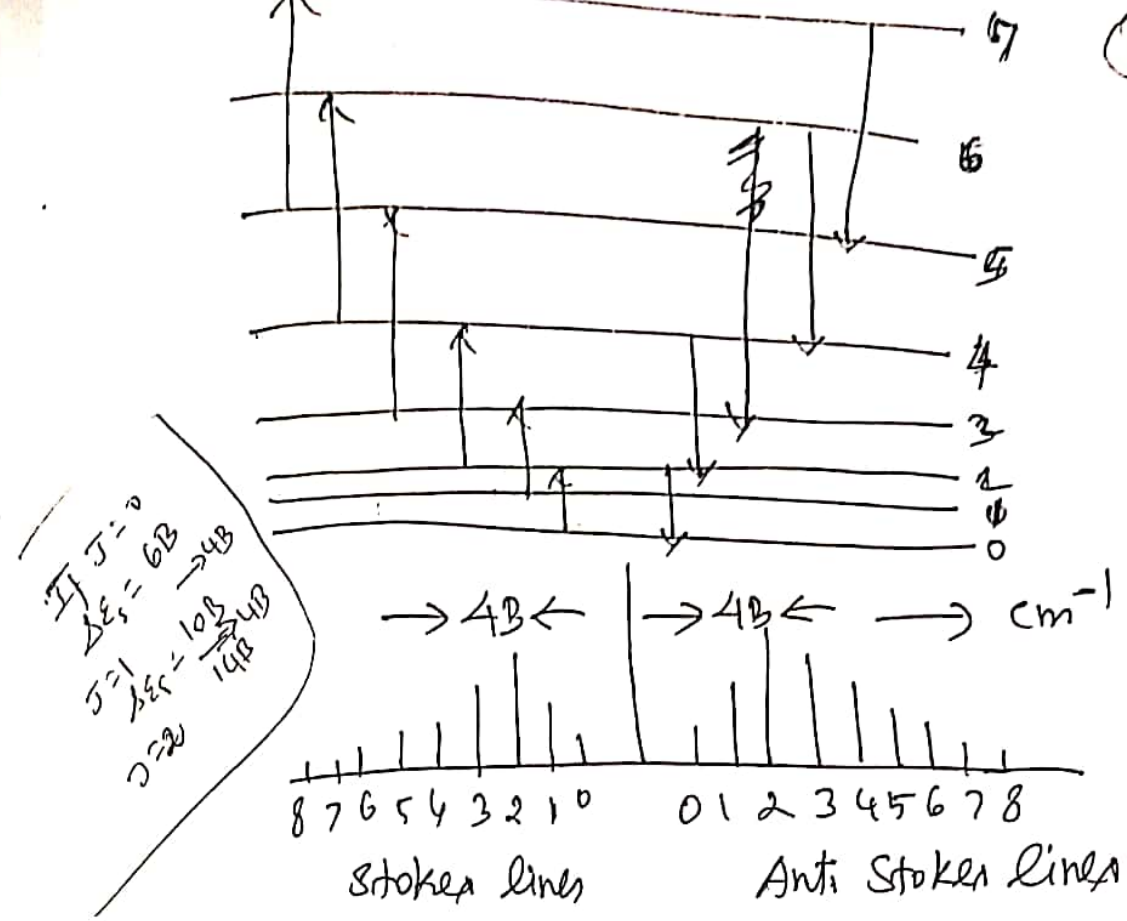 7
6
5
4
3
2
1
0
If J=0
ΔEs = 6B
→4B
J=1
ΔEs = 10B
→4B
14B
J=2
→ 4B ← → 4B ← → cm⁻¹
8 7 6 5 4 3 2 1 0 0 1 2 3 4 5 6 7 8
Stokes lines Anti Stokes lines